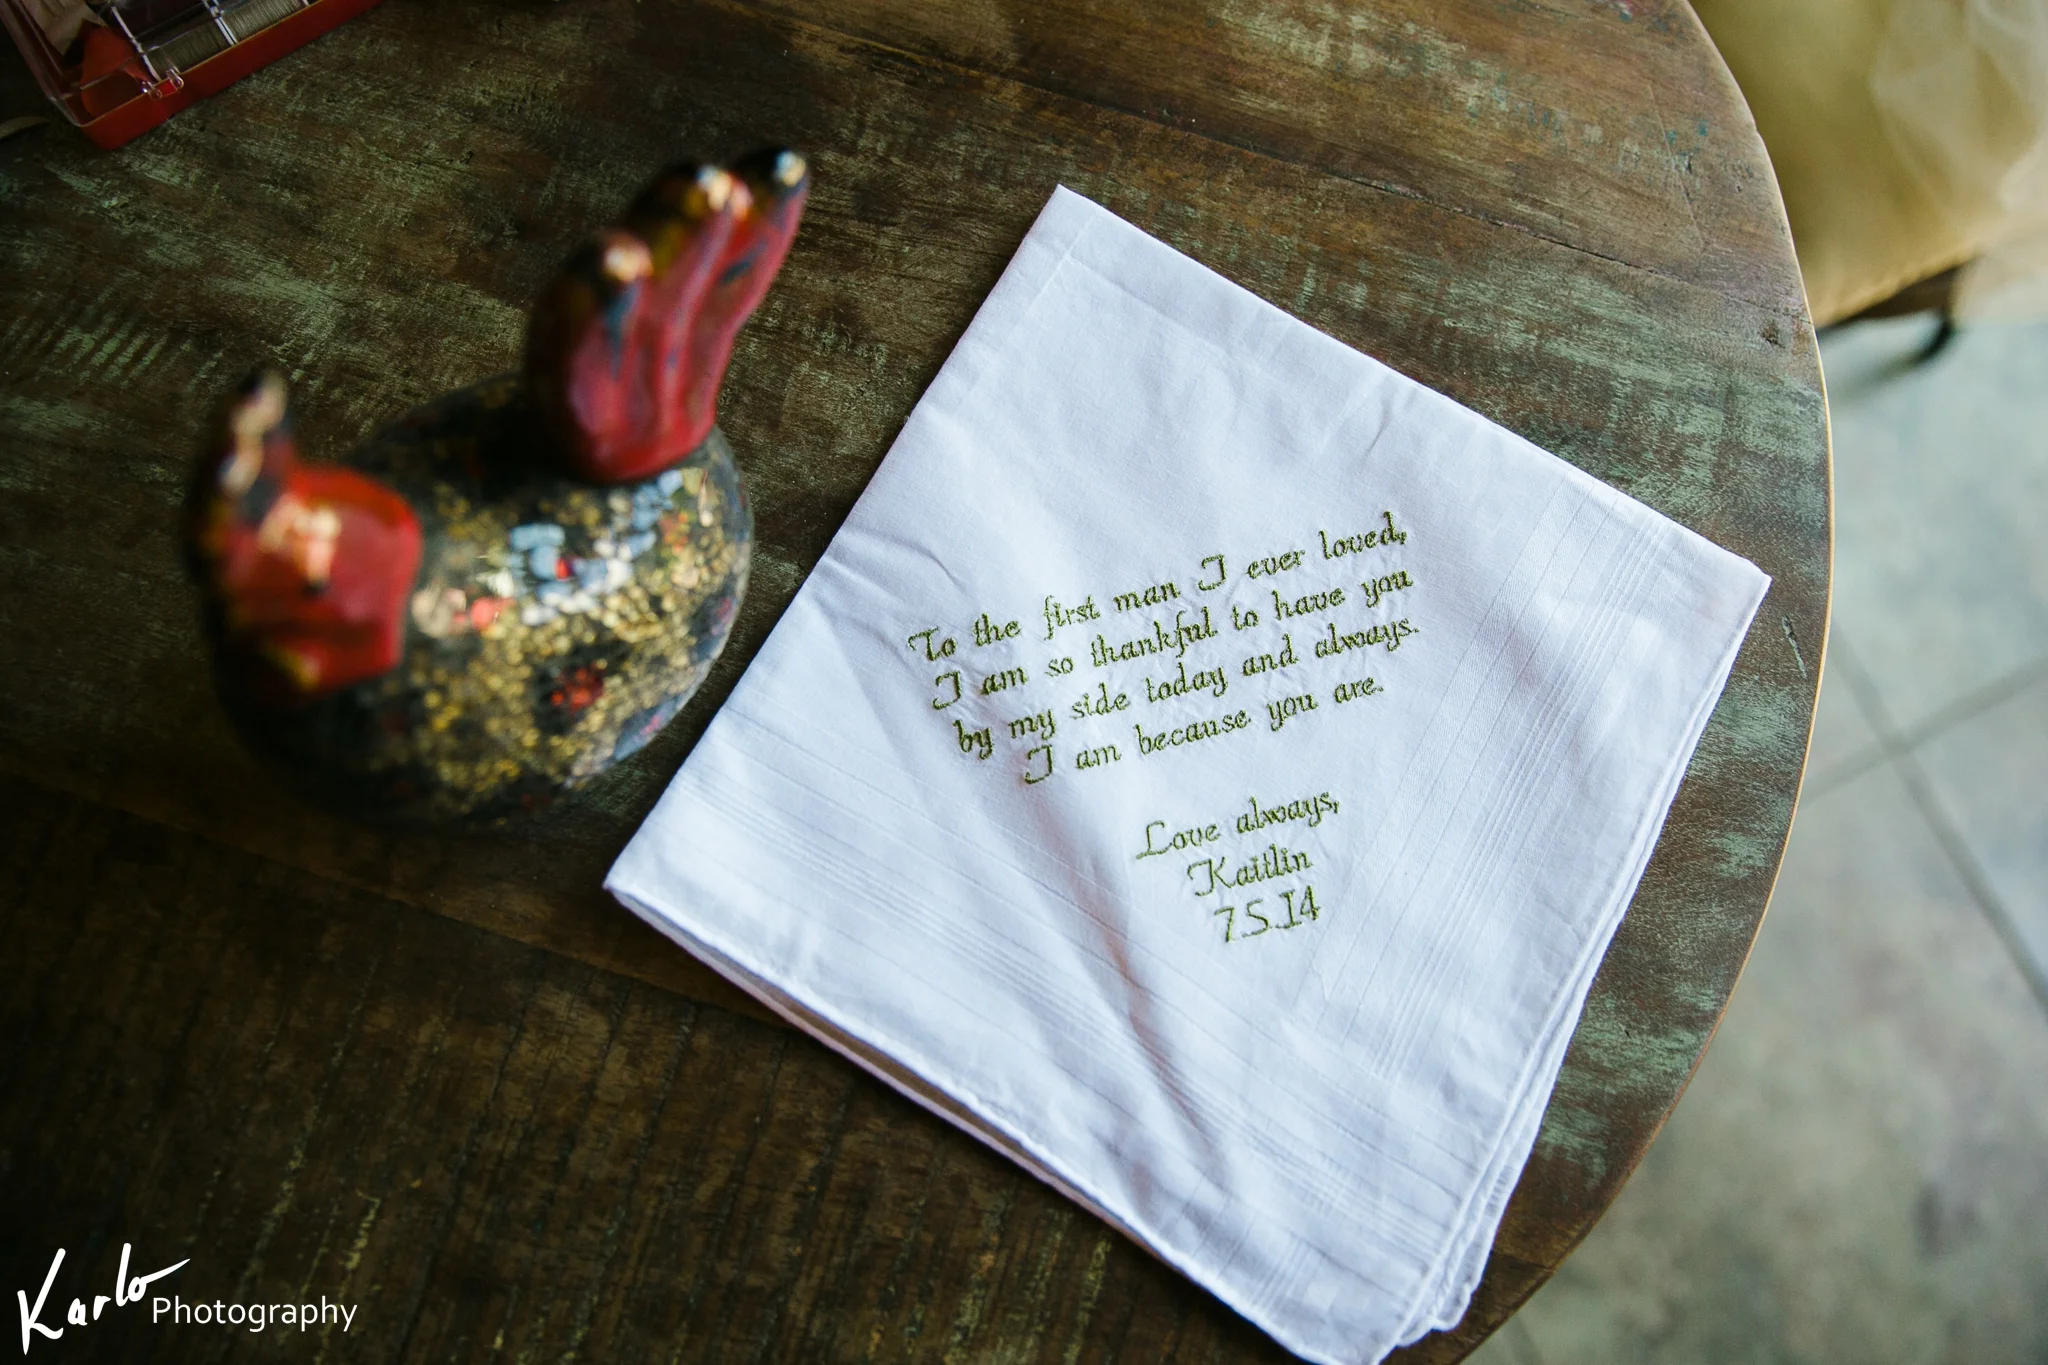 To the first man I ever loved,
I am so thankful to have you
by my side today and always.
I am because you are.
Love always,
Kaitlin
7.5.14
Karlo Photography